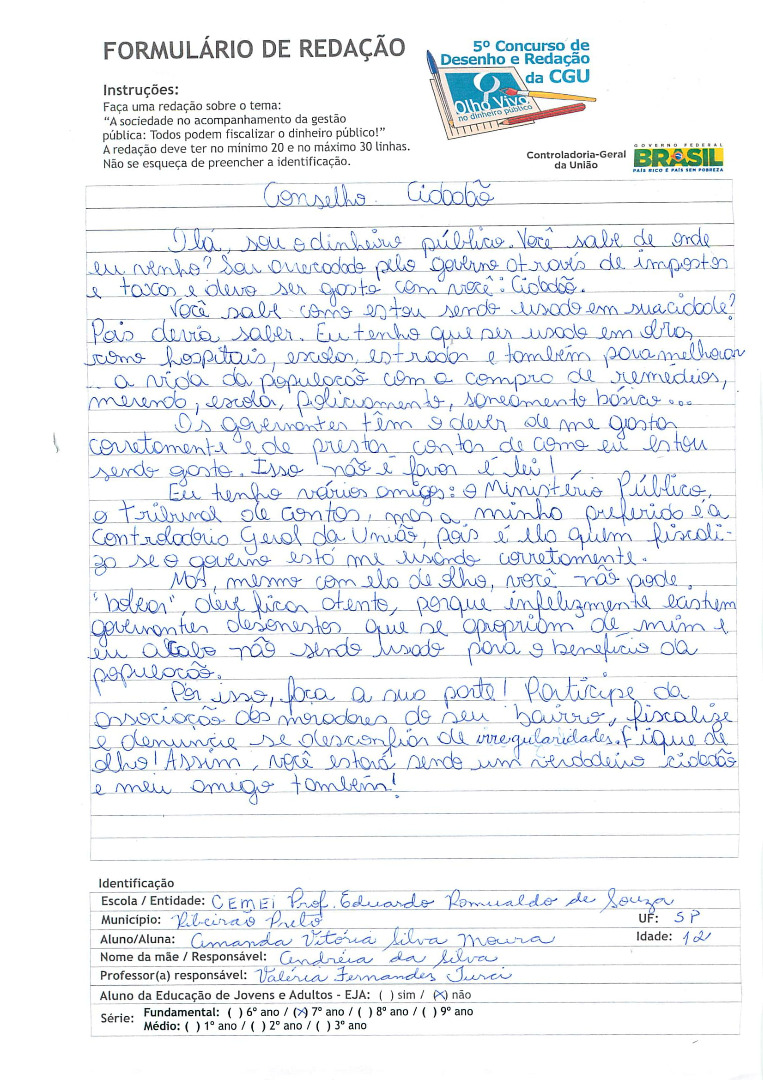 FORMULÁRIO DE REDAÇÃO
5º Concurso de
Desenho e Redação
da CGU
Olho Vivo
no dinheiro público
Instruções:
Faça uma redação sobre o tema:
"A sociedade no acompanhamento da gestão
pública: Todos podem fiscalizar o dinheiro público!"
A redação deve ter no mínimo 20 e no máximo 30 linhas.
Não se esqueça de preencher a identificação.
Controladoria-Geral
da União
GOVERNO FEDERAL
BRASIL
PAÍS RICO É PAÍS SEM POBREZA
Conselho Cidadão
Olá, sou o dinheiro público. Você sabe de onde
eu venho? Sou arrecadado pelo governo através de impostos
e taxas e devo ser gasto com você: Cidadão.
Você sabe como estou sendo usado em sua cidade?
Pois devia saber. Eu tenho que ser usado em obras
como hospitais, escolas, estradas e também para melhorar
a vida da população com a compra de remédios,
merenda, escola, policiamento, saneamento básico...
Os governantes têm o dever de me gastar
corretamente e de prestar contas de como eu estou
sendo gasto. Isso não é favor é lei!
Eu tenho vários amigos: o Ministério Público,
o Tribunal de contas, mas a minha preferida é a
Controladoria Geral da União, pois é ela quem fiscali-
za se o governo está me usando corretamente.
Mas, mesmo com ela de olho, você não pode
"bobear", deve ficar atento, porque infelizmente existem
governantes desonestos que se apropriam de mim e
eu acabo não sendo usado para o benefício da
população.
Por isso, faça a sua parte! Participe da
associação dos moradores do seu bairro, fiscalize
e denuncie se desconfiar de irregularidades. Fique de
olho! Assim, você estará sendo um verdadeiro cidadão
e meu amigo também!
Identificação
Escola / Entidade: CEMEI Prof. Eduardo Romualdo de Souza
Município: Ribeirão Preto UF: SP
Aluno/Aluna: Amanda Vitória Silva Moura Idade: 12
Nome da mãe / Responsável: Andréia da Silva
Professor(a) responsável: Valéria Fernandes Turci
Aluno da Educação de Jovens e Adultos - EJA: ( ) sim / (X) não
Série: Fundamental: ( ) 6º ano / (X) 7º ano / ( ) 8º ano / ( ) 9º ano
Médio: ( ) 1º ano / ( ) 2º ano / ( ) 3º ano